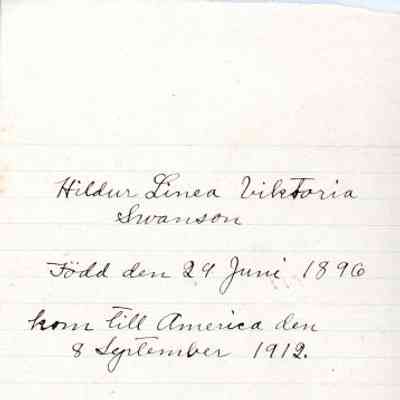 Hildur Linea Viktoria
Swanson
Född den 29 Juni 1896
kom till America den
8 September 1912.